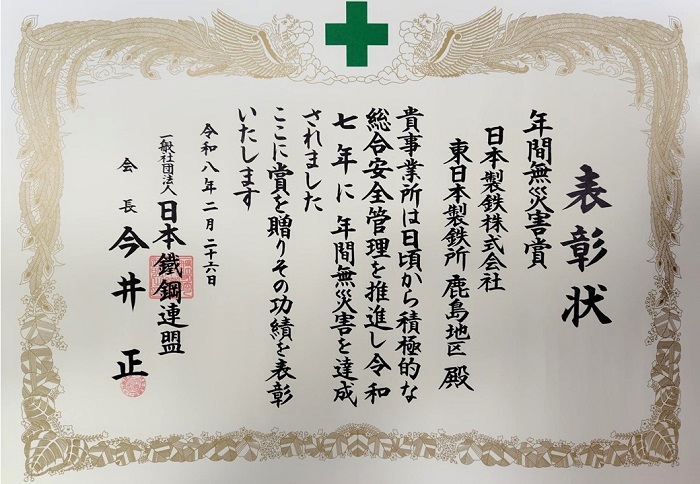 表彰状
年間無災害賞
日本製鉄株式会社
東日本製鉄所 鹿島地区 殿
貴事業所は日頃から積極的な
総合安全管理を推進し令和
七年に年間無災害を達成
されました
ここに賞を贈りその功績を表彰
いたします
令和八年二月二十六日
一般社団法人 日本鐵鋼連盟
会長 今井 正